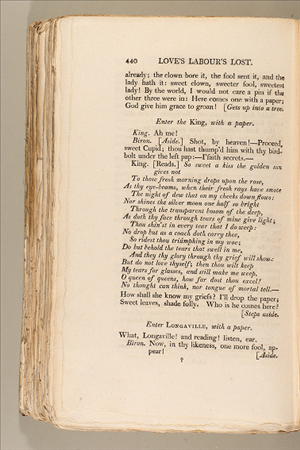 440 LOVE'S LABOUR'S LOST.
already; the clown bore it, the fool sent it, and the
lady hath it: sweet clown, sweeter fool, sweetest
lady! By the world, I would not care a pin if the
other three were in: Here comes one with a paper;
God give him grace to groan! [Gets up into a tree.
Enter the King, with a paper.
King. Ah me!
Biron. [Aside.] Shot, by heaven!—Proceed,
sweet Cupid; thou hast thump'd him with thy bird-
bolt under the left pap:—I'faith secrets.—
King. [Reads.] So sweet a kiss the golden sun
gives not
To those fresh morning drops upon the rose,
As thy eye-beams, when their fresh rays have smote
The night of dew that on my cheeks down flows:
Nor shines the silver moon one half so bright
Through the transparent bosom of the deep,
As doth thy face through tears of mine give light;
Thou shin'st in every tear that I do weep:
No drop but as a coach doth carry thee,
So ridest thou triumphing in my woe;
Do but behold the tears that swell in me,
And they thy glory through thy grief will show:
But do not love thyself; then thou wilt keep
My tears for glasses, and still make me weep.
O queen of queens, how far dost thou excel!
No thought can think, nor tongue of mortal tell.—
How shall she know my griefs? I'll drop the paper;
Sweet leaves, shade folly. Who is he comes here?
[Steps aside.
Enter LONGAVILLE, with a paper.
What, Longaville! and reading! listen, ear.
Biron. Now, in thy likeness, one more fool, ap-
pear! [Aside.